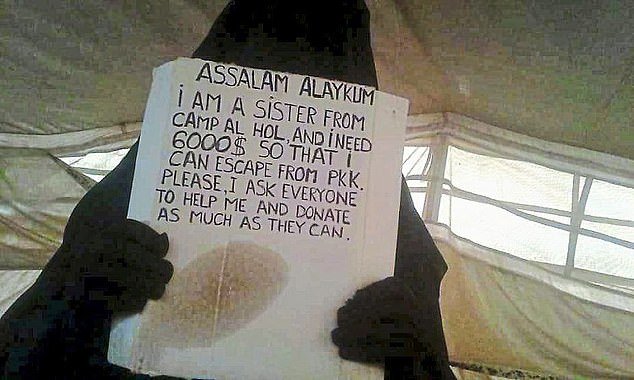 ASSALAM ALAYKUM
i AM A SiSTER FROM
CAMP AL HOL, AND i NEED
6000$ SO THAT i
CAN ESCAPE FROM PKK.
PLEASE, I ASK EVERYONE
TO HELP ME AND DONATE
AS MUCH AS THEY CAN.